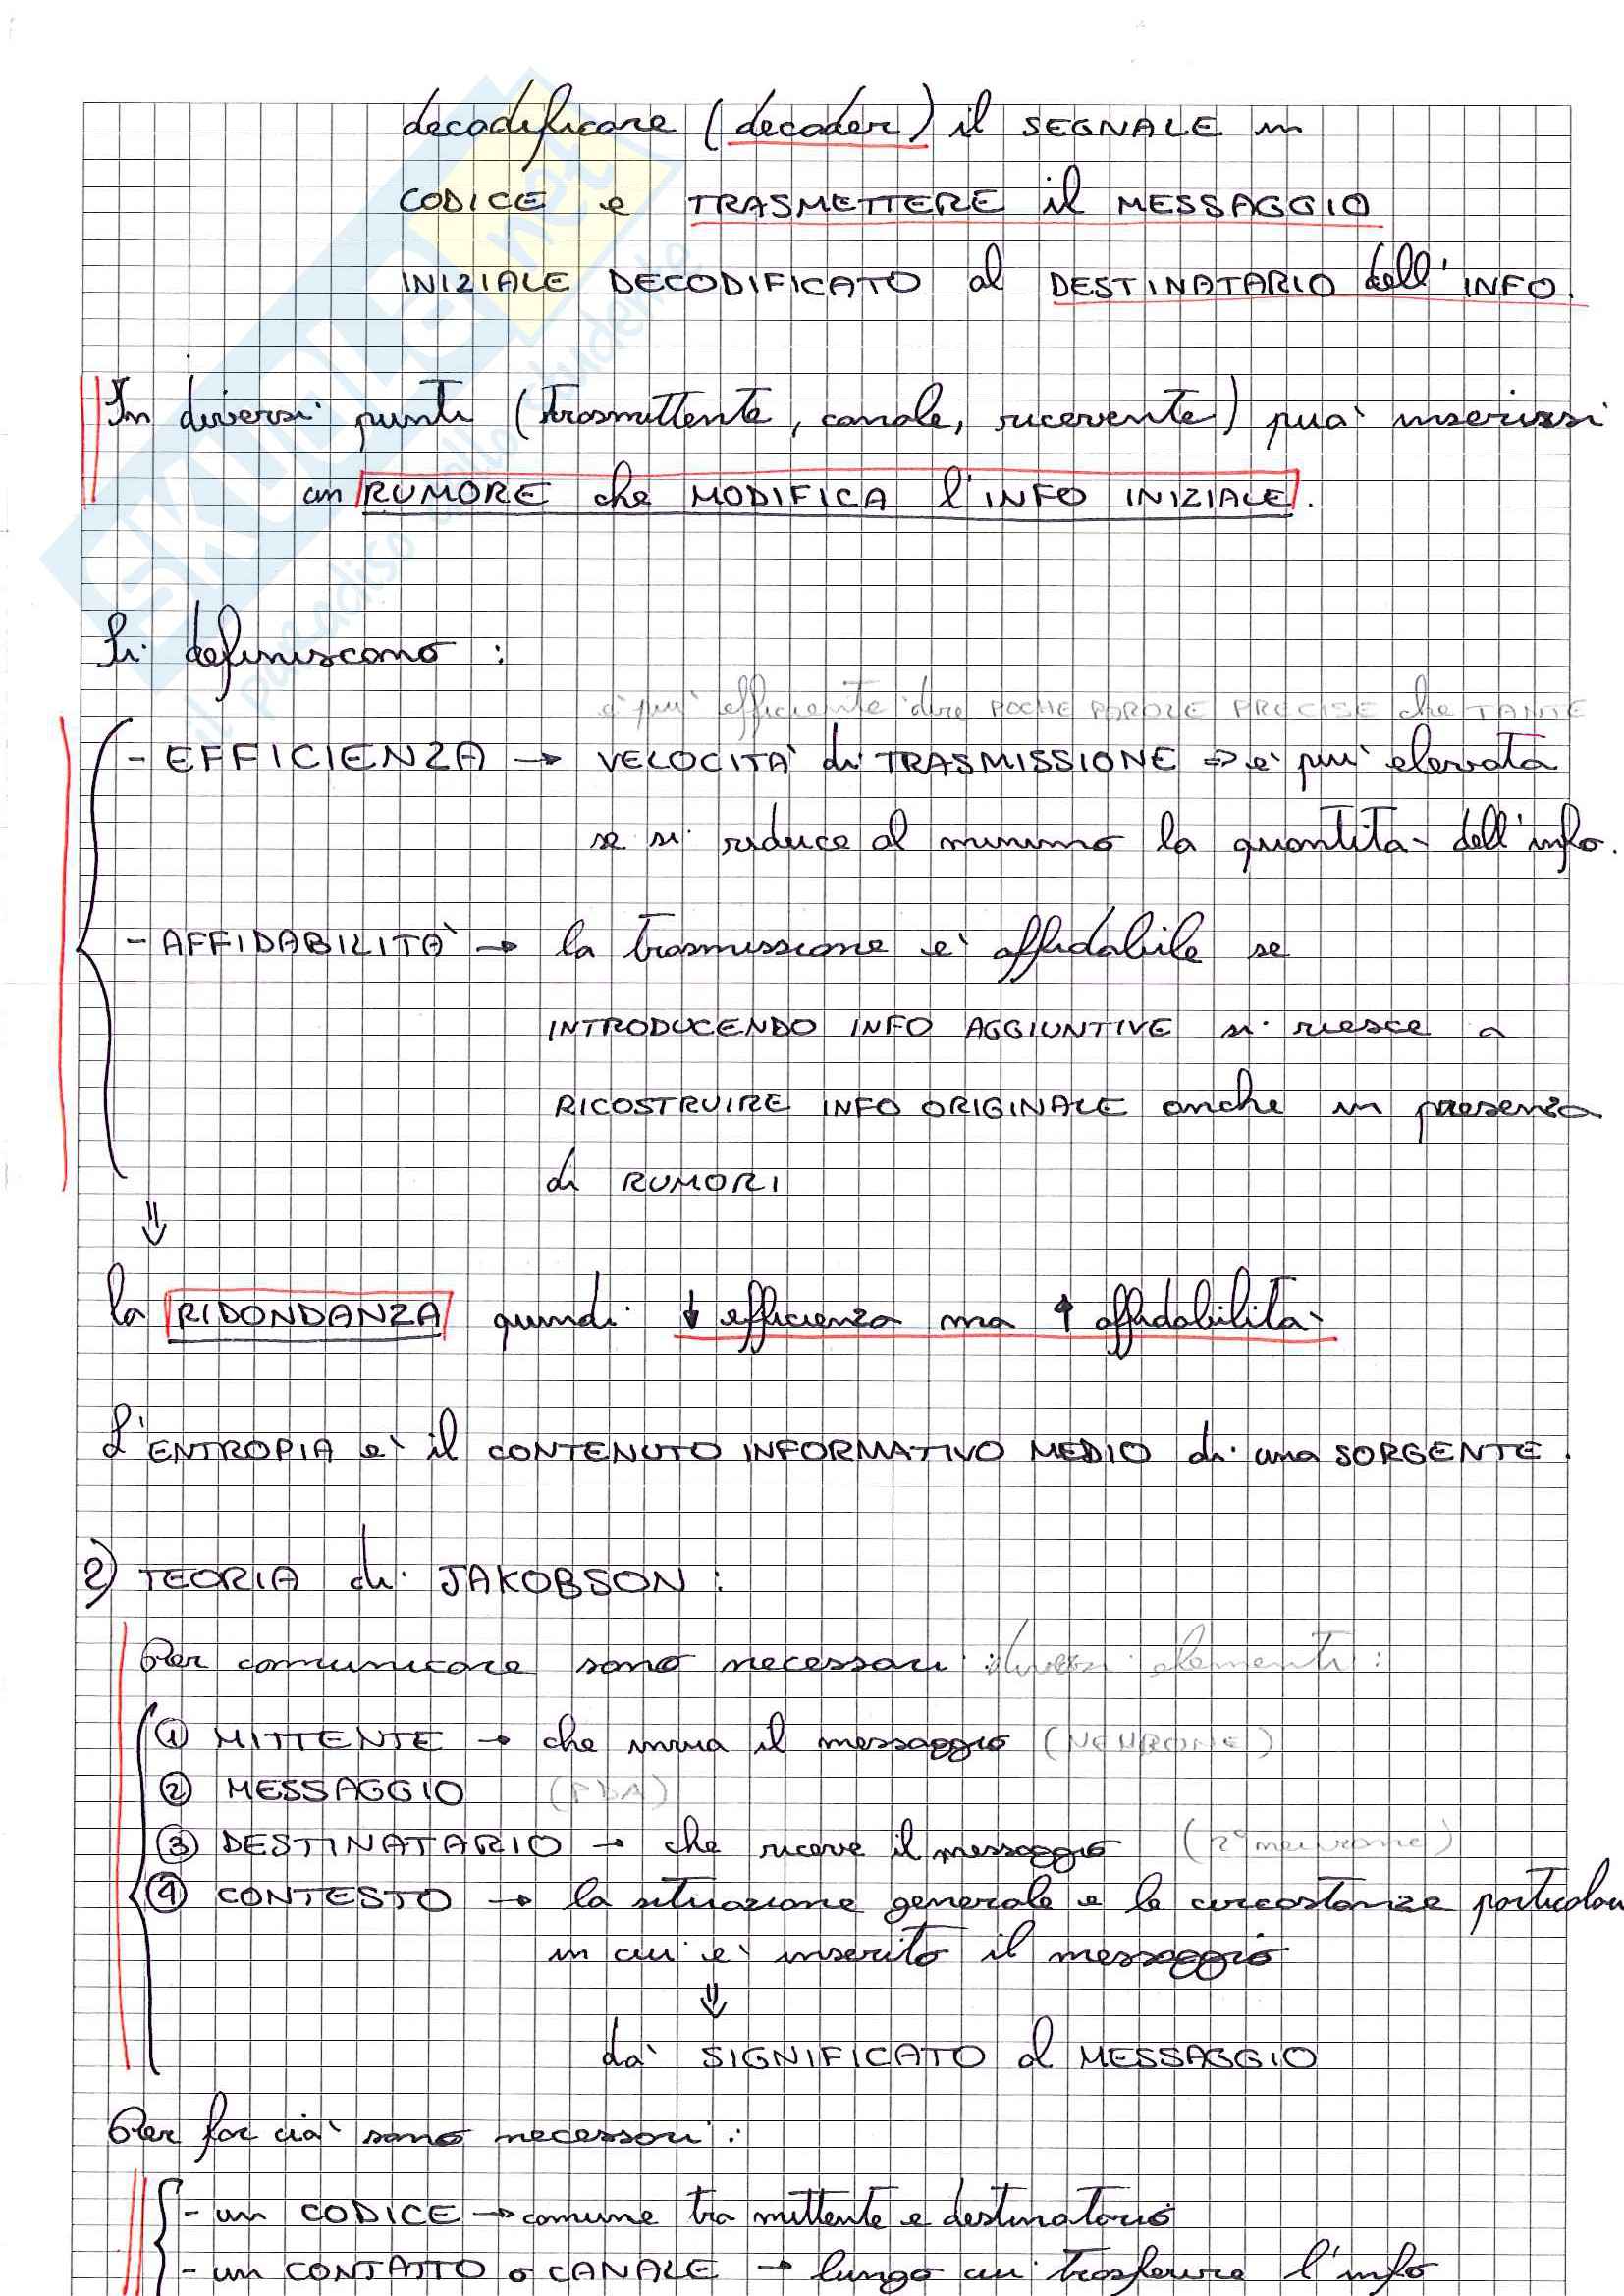 decodificare (decoder) il SEGNALE in
CODICE e TRASMETTERE il MESSAGGIO
INIZIALE DECODIFICATO al DESTINATARIO dell'INFO.
In diversi punti (trasmittente, canale, ricevente) può inserirsi
un RUMORE che MODIFICA l'INFO INIZIALE.
Si definiscono :
è più efficiente dire POCHE PAROLE PRECISE che TANTE
- EFFICIENZA → VELOCITÀ di TRASMISSIONE => è più elevata
se si riduce al minimo la quantità dell'info.
- AFFIDABILITÀ → la trasmissione è affidabile se
INTRODUCENDO INFO AGGIUNTIVE si riesce a
RICOSTRUIRE INFO ORIGINALE anche in presenza
di RUMORI
⇓
la RIDONDANZA quindi ↓ efficienza ma ↑ affidabilità
L'ENTROPIA è il CONTENUTO INFORMATIVO MEDIO di una SORGENTE.
2) TEORIA di JAKOBSON :
Per comunicare sono necessari diversi elementi :
① MITTENTE → che invia il messaggio (NEURONE)
② MESSAGGIO (PDA)
③ DESTINATARIO → che riceve il messaggio (2° neurone)
④ CONTESTO → la situazione generale e le circostanze particolari
in cui è inserito il messaggio
⇓
dà SIGNIFICATO al MESSAGGIO
Per far ciò sono necessari :
- un CODICE → comune tra mittente e destinatario
- un CONTATTO o CANALE → lungo cui trasferire l'info
SKUOLA.net
il paradiso dello studente